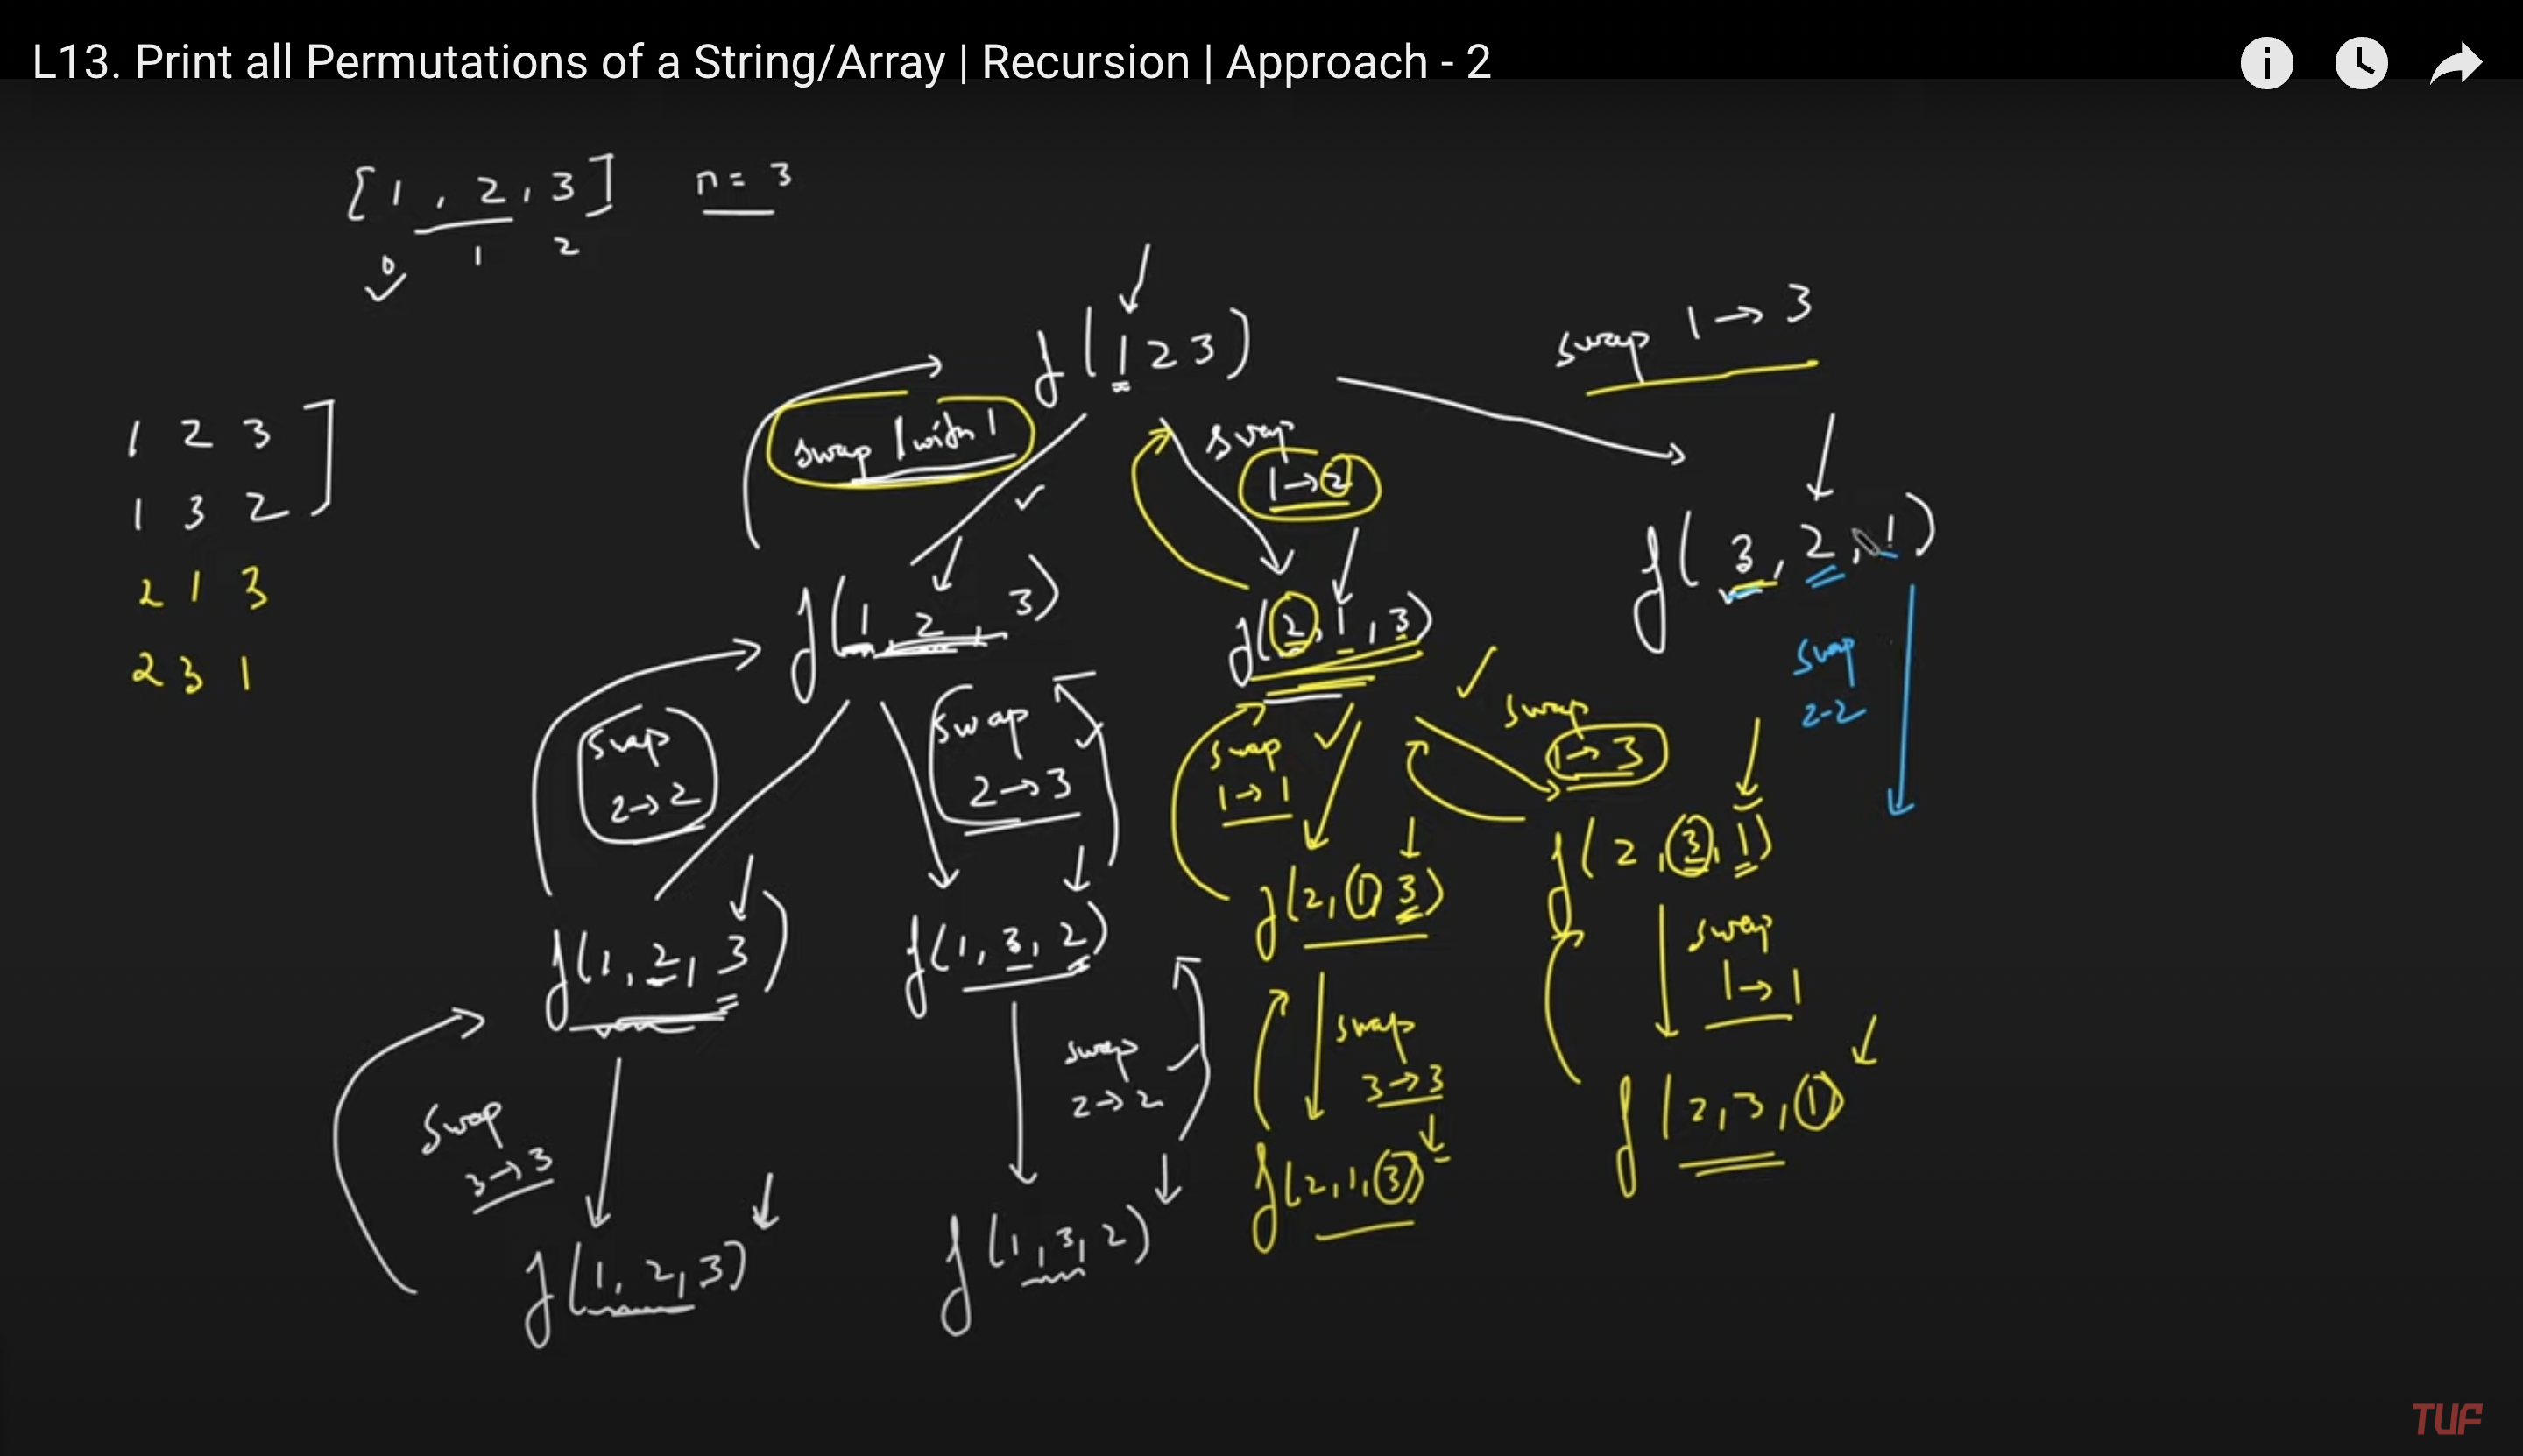 L13. Print all Permutations of a String/Array | Recursion | Approach - 2
[1, 2, 3] n = 3
0 1 2
swap 1→3
f(1 2 3)
swap 1 with 1
swap
1→2
1 2 3]
1 3 2
2 1 3
2 3 1
f(3, 2, 1)
f(1, 2, 3)
f(2, 1, 3)
swap
2-2
swap
2→2
swap
2→3
swap
1→1
swap
1→3
f(1, 2, 3)
f(1, 3, 2)
f(2, 1 3)
f(2, 3, 1)
swap
3→3
swap
2→2
swap
3→3
swap
1→1
f(1, 2, 3)
f(1, 3, 2)
f(2, 1, 3)
f(2, 3, 1)
TUF